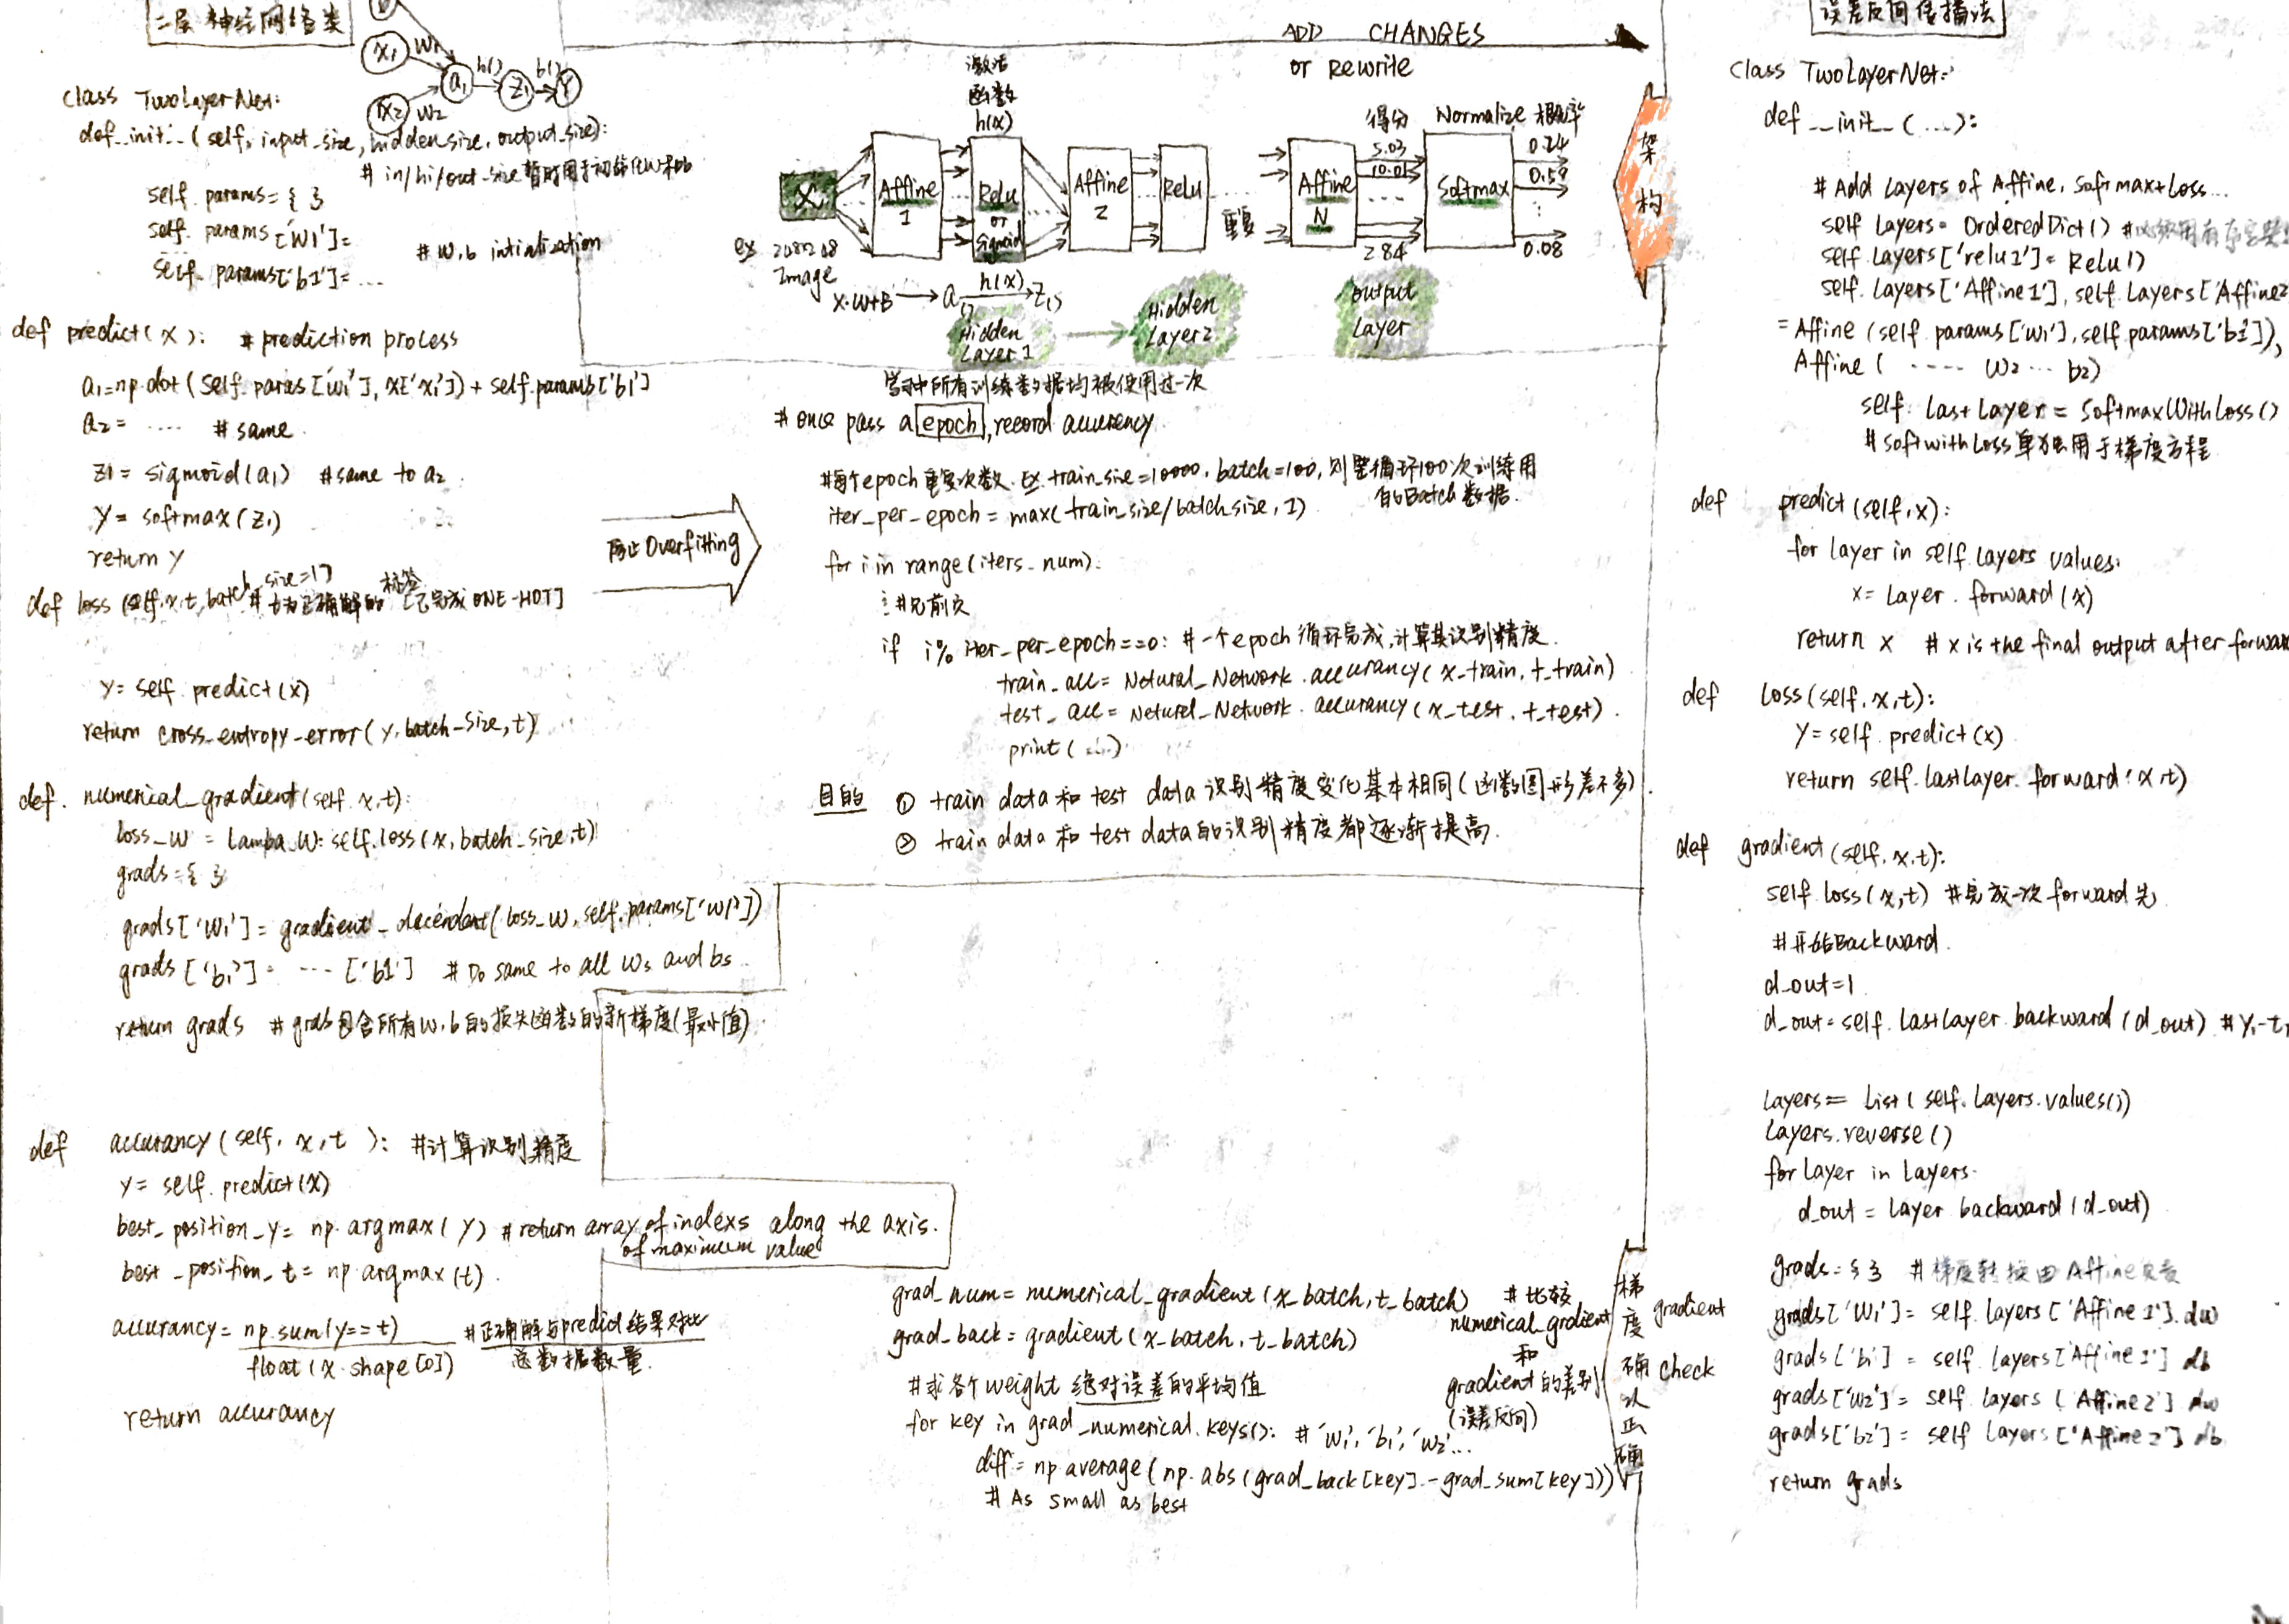 二层神经网络类
x1
w1
x2
w2
a1
h()
z1
b()
Y
class TwoLayerNet:
def __init__(self, input_size, hidden_size, output_size):
# in/hi/out_size 暂时用于初始化w和b
self. params={ }
self. params['W1']=
# w,b intialization
self. params['b1']= ...
def predict(x): # prediction process
a1=np.dot(self.paras['w1'], x['x1'])+self.params['b1']
a2= .... # same
z1 = sigmoid(a1) #same to a2
Y = softmax(z1)
return Y
def loss (self,x,t,batch_size=1)
# t为正确解的标签 [已完成 ONE-HOT]
Y= self. predict(x)
return cross_entropy_error(y,batch_size,t)
def. numerical_gradient(self. x,t):
loss_w = Lampa_W: self.loss(x,batch_size,t)
grads={ }
grads['W1']=gradient_decendent(loss_w, self.params['W1'])
grads['b1']= ... ['b1'] # Do same to all ws and bs
return grads # grab包含所有w,b的损失函数的新梯度(最小值)
def accurancy(self, x,t): #计算识别精度
Y= self. predict(x)
best_position_y= np.argmax(y) # return array of indexs along the axis.
of maximum value
best_position_t= np argmax(t)
accurancy= np.sum(y==t)
float(x.shape[0])
#正确解与predict结果对比
总数据数量
return accurancy
ADD CHANGES
or Rewrite
激活
函数
h(x)
X
ex 208*208
Image
Affine
1
Relu
or
Sigmoid
Affine
2
Relu
重复
Affine
N
得分
5.03
10.01
...
2.84
Normalize 概率
Softmax
0.24
0.59
0.08
X·W+B → a h(x) → z()
Hidden
Layer 1
Hidden
Layer 2
output
Layer
架构
学习中所有训练数据均被使用过一次
# once pass a epoch, record accurency
#每个epoch重复次数. Ex. train_size=10000, batch=100, 则要循环100次训练用
的Batch数据.
iter_per_epoch = max(train_size/batch size, 1)
防止Overfitting
for i in range(iters_num):
#见前页
if i% iter_per_epoch==0: # 一个epoch循环完成,计算其识别精度.
train_acc= Netural_Network.accurancy(x_train, t_train)
test_acc= Netural_Network.accurancy(x_test, t_test)
print(...)
目的 ① train data 和 test data 识别精度变化基本相同(函数图形差不多)
② train data 和 test data的识别精度都逐渐提高.
grad_num= numerical_gradient(x_batch,t_batch) # 比较
numerical_grdient
grad_back= gradient(x_batch, t_batch)
和
gradient的差别
(误差反向)
#求各个weight 绝对误差的平均值
for key in grad_numerical.keys(): # 'W1', 'b1', 'W2'...
diff = np average(np.abs(grad_back[key]-grad_sum[key]))
# As small as best
梯度确认正确
gradient
check
误差反向传播法
Class TwoLayerNet:
def __init__(...):
# Add Layers of Affine, softmax+loss...
self Layers= OrderedDict()
self.Layers['relu1']= Relu()
self.Layers['Affine1'], self.Layers['Affine2
= Affine (self.params['W1'], self.params['b1']),
Affine ( .... W2 ... b2)
self. Last Layer = SoftmaxWithLoss()
# softwithLoss 单独用于梯度方程
def predict(self,x):
for layer in self Layers values:
x= Layer. forward(x)
return x # x is the final output after forwar
def Loss(self,x,t):
Y=self. predict(x)
return self.lastlayer. forward(x,t)
def gradient(self,x,t):
self.loss(x,t) #完成一次forward先
# 开始Backward.
d_out=1
d_out=self.Lastlayer.backward(d_out) # y1-t1
Layers= List(self.Layers.values())
Layers.reverse()
for Layer in Layers:
d_out = Layer backward(d_out)
grads={ } # 梯度转换由Affine负责
grads['W1']= self. layers['Affine 1'].dw
grads['b1'] = self. layers['Affine 1'] db
grads['W2']= self. layers ('Affine 2'] dw
grads['b2']= self layers['Affine 2'] db
return grads